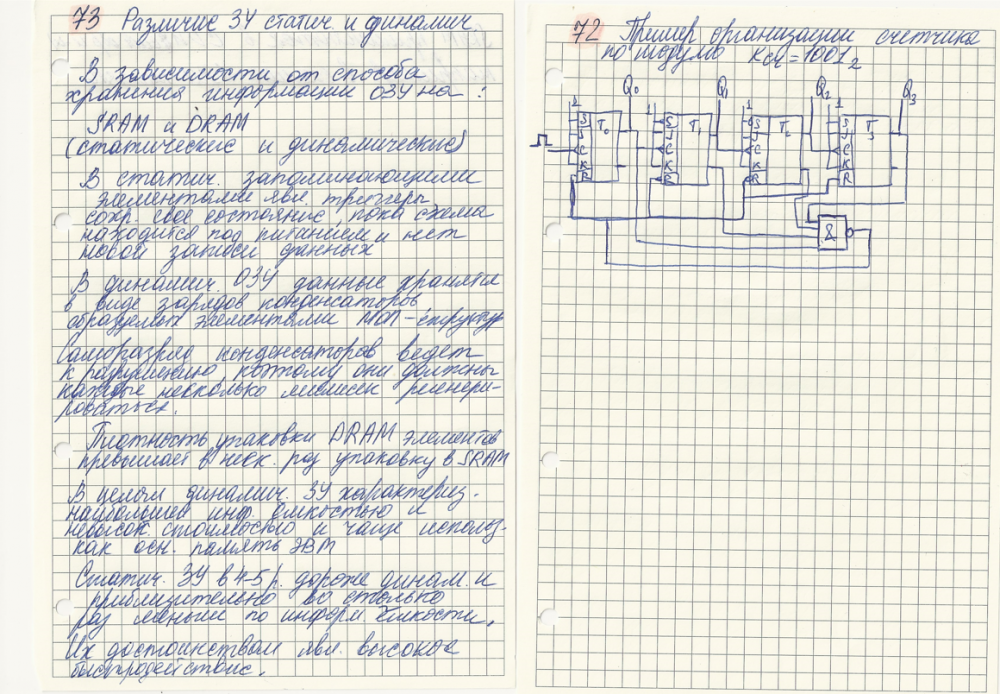 73 Различие ЗУ статич. и динамич.
В зависимости от способа
хранения информации ОЗУ на :
SRAM и DRAM
(статические и динамические)
В статич. запоминающими
элементами явл. триггеры
сохр. свое состояние пока схема
находится под питанием и нет
новой записи данных
В динамич. ОЗУ данные хранятся
в виде зарядов конденсаторов
образуемых элементами МОП-структур
Саморазряд конденсаторов ведет
к разрушению, поэтому они должны
каждые несколько миллисек регенери-
роваться.
Плотность упаковки DRAM элементов
превышает в неск. раз упаковку в SRAM
В целом динамич. ЗУ характериз.
наибольшей инф. емкостью и
невысок. стоимостью и чаще использ.
как осн. память ЭВМ
Статич. ЗУ в 4-5 р. дороже динам. и
приблизительно во столько
раз меньше по информ. емкости.
Их достоинством явл. высокое
быстродействие.
72 Пример организации счетчика
по модулю Kсч=1001₂
Q0 Q1 Q2 Q3
1 1 1 1
S T0 S T1 S T2 S T3
J J J J
C C C C
K K K K
R R R R
&